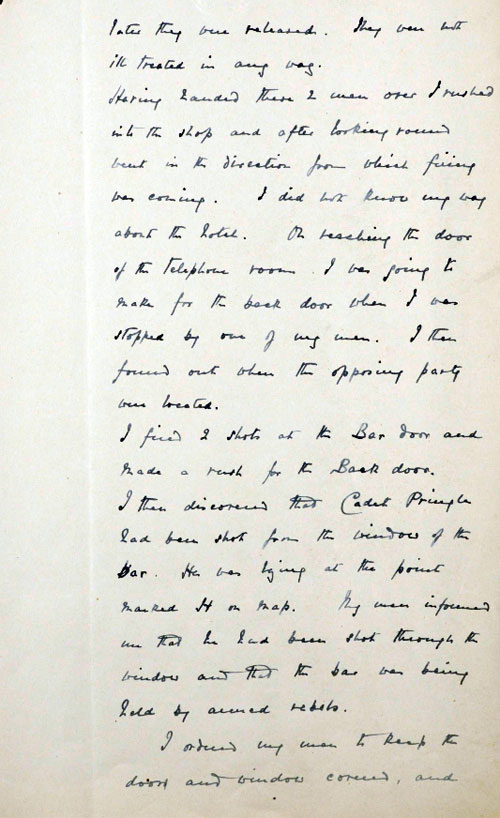 later they were released. They were not
ill treated in any way.
Having handed these 2 men over I rushed
into the shop and after looking round
went in the direction from which firing
was coming. I did not know my way
about the hotel. On reaching the door
of the telephone room I was going to
make for the back door when I was
stopped by one of my men. I then
found out where the opposing party
were located.
I fired 2 shots at the Bar door and
made a rush for the Back door.
I then discovered that Cadet Pringle
had been shot from the window of the
Bar. He was lying at the point
marked H on map. My men informed
me that he had been shot through the
window and that the bar was being
held by armed rebels.
I ordered my men to keep the
doors and window covered, and